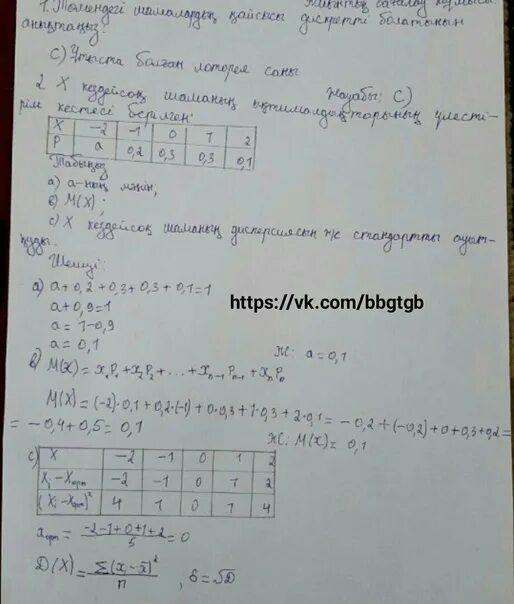 1. Төмендегі шамалардың қайсысы дискретті болатынын
анықтаңыз:
С) Ұтыста болған лоторея саны
Жауабы: С)
2 X кездейсоқ шаманың ықтималдықторының үлесті-
рім кестесі берілген:
X -2 -1 0 1 2
P a 0,2 0,3 0,3 0,1
Табыңыз
а) а-ның мәнін;
в) М(X);
с) X кездейсоқ шаманың дисперсиясын ж/е стандартты ауыт-
қуды.
Шешуі:
а) a+0,2+0,3+0,3+0,1=1
a+0,9=1
a=1-0,9
a=0,1
Ж: a=0,1
https://vk.com/bbgtgb
в) M(X)=x₁P₁+x₂P₂+...+xₙ₋₁Pₙ₋₁+xₙPₙ
M(X)=(-2)·0,1+0,2·(-1)+0·0,3+1·0,3+2·0,1=-0,2+(-0,2)+0+0,3+0,2=
=-0,4+0,5=0,1
Ж: M(x)=0,1
с) X -2 -1 0 1 2
Xi-Xорт -2 -1 0 1 2
(Xi-Xорт)² 4 1 0 1 4
xорт=(-2-1+0+1+2)/5=0
D(X)=Σ(xi-x̄)²/n, б=√D